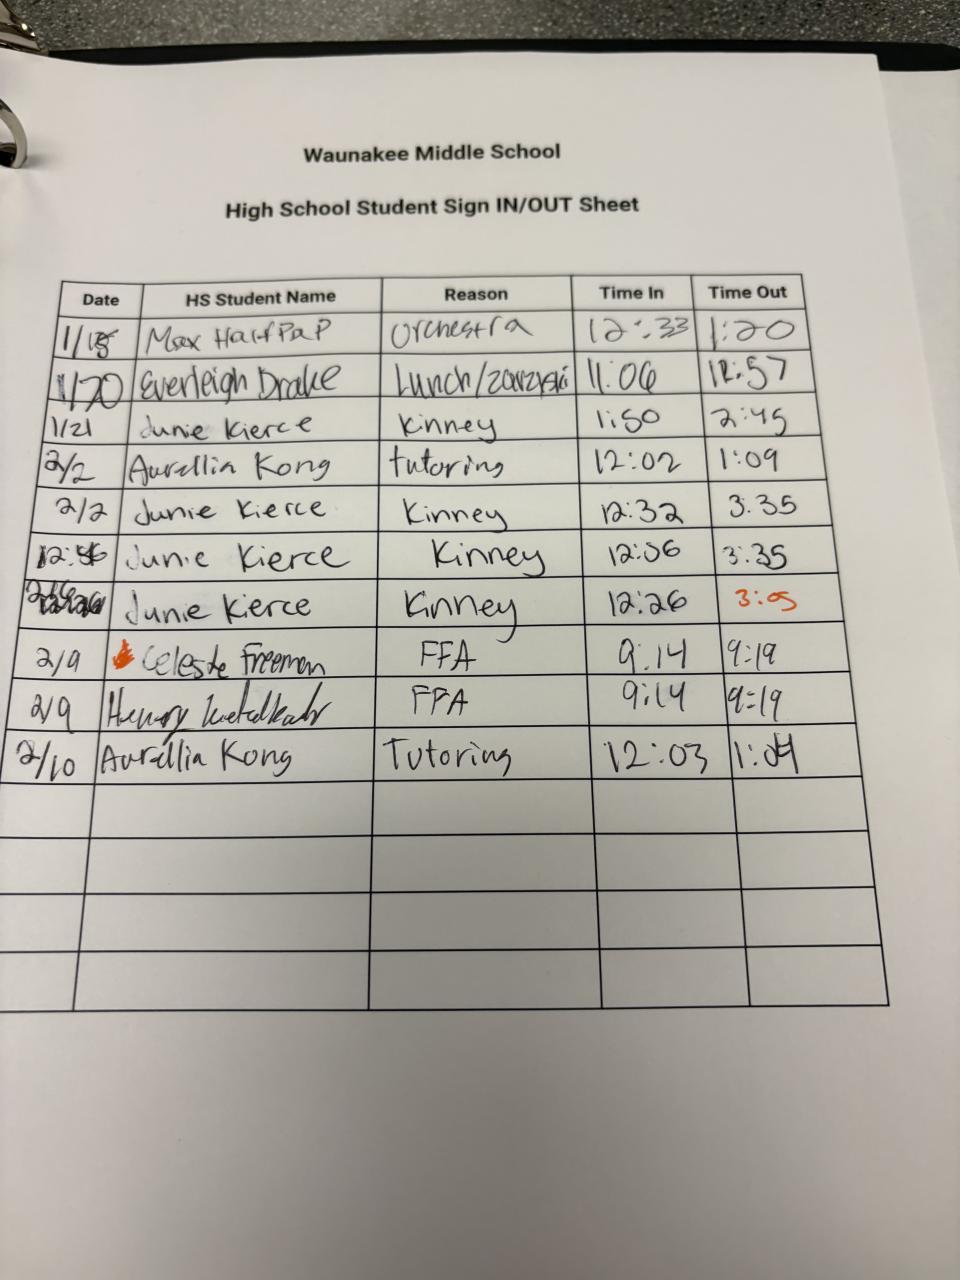 Waunakee Middle School
High School Student Sign IN/OUT Sheet
Date HS Student Name Reason Time In Time Out
1/15 Max HalfPaP Orchestra 12:33 1:20
1/20 Everleigh Drake Lunch/zarzyski 11:06 12:57
1/21 Junie Kierce Kinney 1:50 2:45
2/2 Aurellia Kong tutoring 12:02 1:09
2/2 Junie Kierce Kinney 12:32 3:35
12:56 Junie Kierce Kinney 12:56 3:35
Junie Kierce Kinney 12:26 3:05
2/9 Celeste Freeman FFA 9:14 9:19
2/9 Henry FFA 9:14 9:19
2/10 Aurellia Kong Tutoring 12:03 1:04